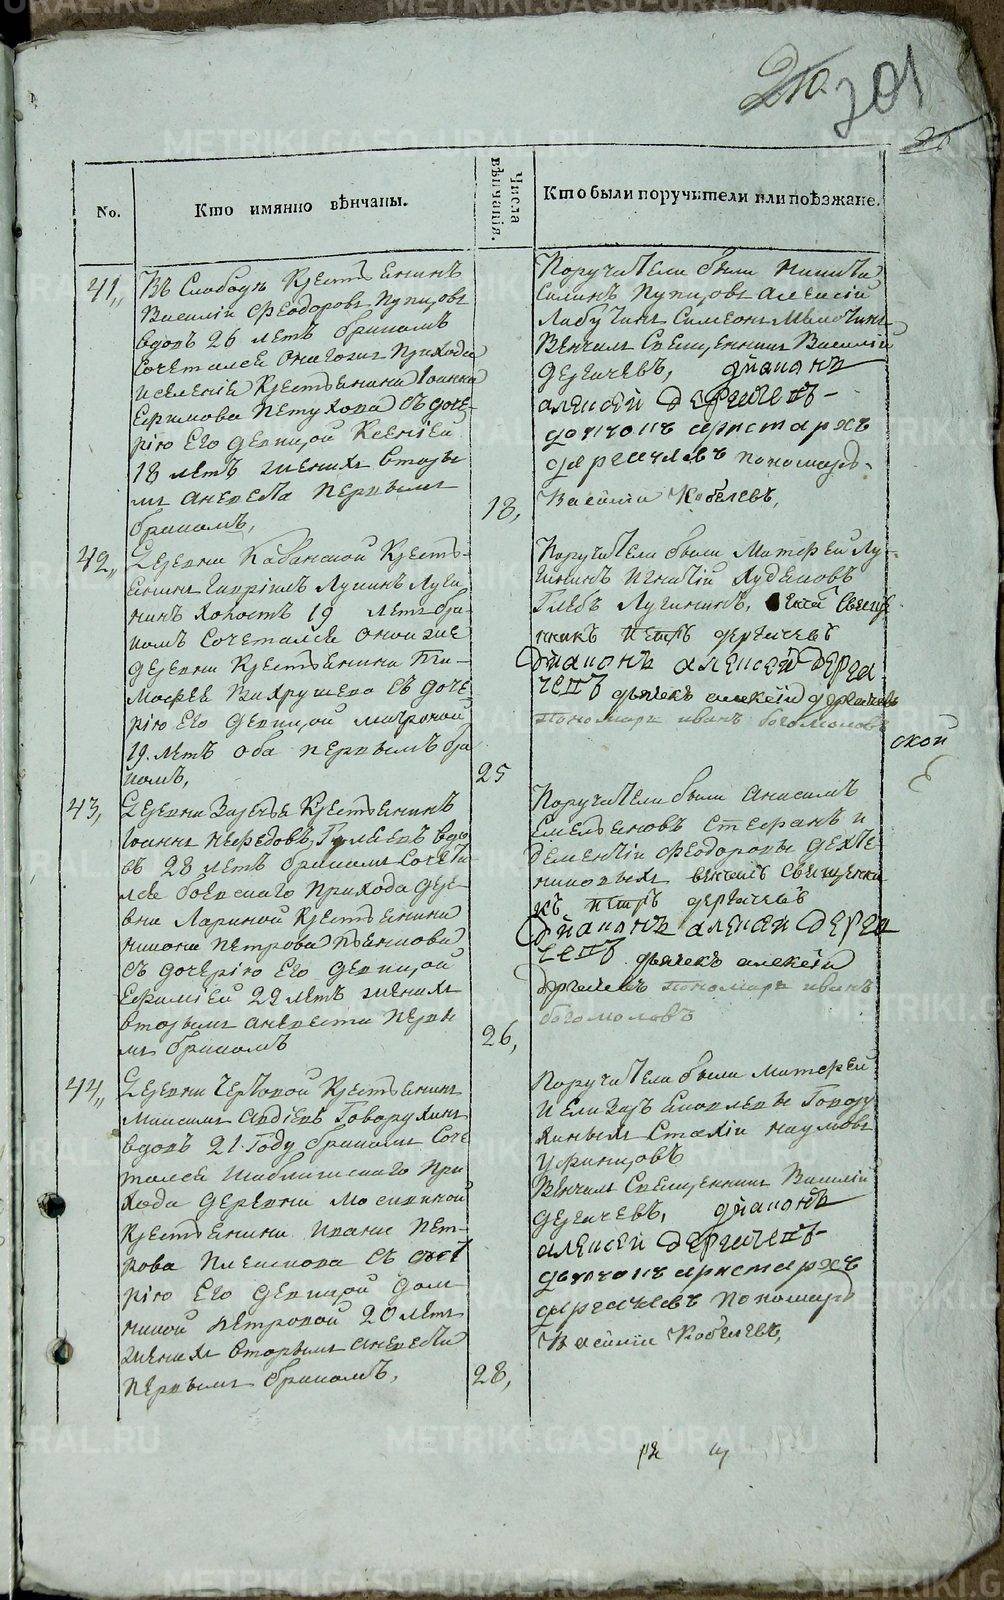 METRIKI.GASO-URAL.RU
210.
201
No.
Кто имянно вѣнчаны.
Числа вѣнчанія.
Кто были поручители или поѣзжане.
41,,
Въ Слободѣ Крестьянинъ
Василій Феодоровъ Пупцовъ
вдовъ 26 лѣтъ бракомъ
сочетался онагожъ прихода
и селенія Крестьянина Іоанна
Ефимова Петухова съ доче-
рію его девицей Ксеніей
18 летъ женихъ вторы
мъ а невеста первымъ
бракомъ,
18,
Поручители были Никита
Силинъ Пупцовъ Алексій
Лабутинъ Симеонъ Мылочинъ
Венчалъ Священникъ Василій
Дергачевъ, Диаконъ
Алексей Дергачевъ
дьячокъ Аристархъ
Дергачевъ пономарь
Василій Кобелевъ,
42,,
Деревни Кабанской Кресть-
янинъ Гаврілъ Лукинъ Луги
нинъ холостъ 19 летъ бра
комъ сочетался оной же
деревни Крестьянина Ти-
мофея Вахрушева съ доче-
рію его девицей Матроной
19. летъ оба первымъ бра
комъ,
25
Поручители были Матфей Лу-
гининъ Игнатій Худяковъ
Глебъ Лугининъ, Священ
никъ Петръ Дергачевъ
Диаконъ Алексей Дерга
чевъ дьячекъ Алексій Дергачевъ
пономарь Иванъ Богомоловъ
ской
43,
Деревни Заречья Крестьянинъ
Іоаннъ Нефедовъ Гуляевъ вдо
въ 28 летъ бракомъ сочета
лся Боевскаго прихода дере
вни Лариной Крестьянина
Никона Петрова Пьянкова
съ дочерію его девицей
Ефиміей 22 летъ женихъ
вторымъ а невеста первы
мъ бракомъ
26,
Поручители были Анисимъ
Емельяновъ Стефанъ и
Дементій Феодоровы Дехтя
никовыхъ венчалъ Священни
къ Петръ Дергачевъ
Диаконъ Алексей Дерга
чевъ дьячекъ Алексій
Дргачевъ пономарь Иванъ
Богомоловъ
44,,
Деревни Чертовой Крестьянинъ
Максимъ Авдіевъ Говорухинъ
вдовъ 21. году бракомъ соче
тался Шаблишскаго при
хода деревни Мосиной
Крестьянина Ивана Пет-
рова Плешкова съ доче
рію его девицей Дом
никой Петровой 20 летъ
женихъ вторымъ а невеста
первымъ бракомъ,
28,
Поручители были Матфей
и Елизаръ Яковлевы Говору
хиныхъ Стахій Наумовъ
Уфинцовъ
Венчалъ Священникъ Василій
Дергачевъ, Диаконъ
Алексей Дергачевъ
дьячокъ Аристархъ
Дргачевъ пономарь
Василій Кобелевъ,